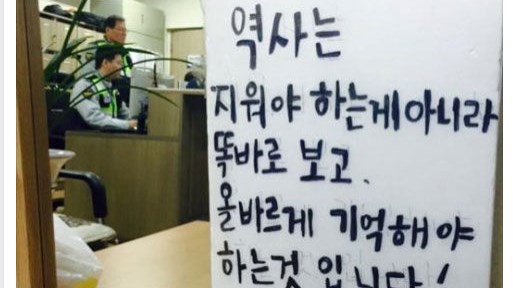 역사는
지워야 하는게아니라
똑바로 보고.
올바르게 기억해야
하는것 입니다!